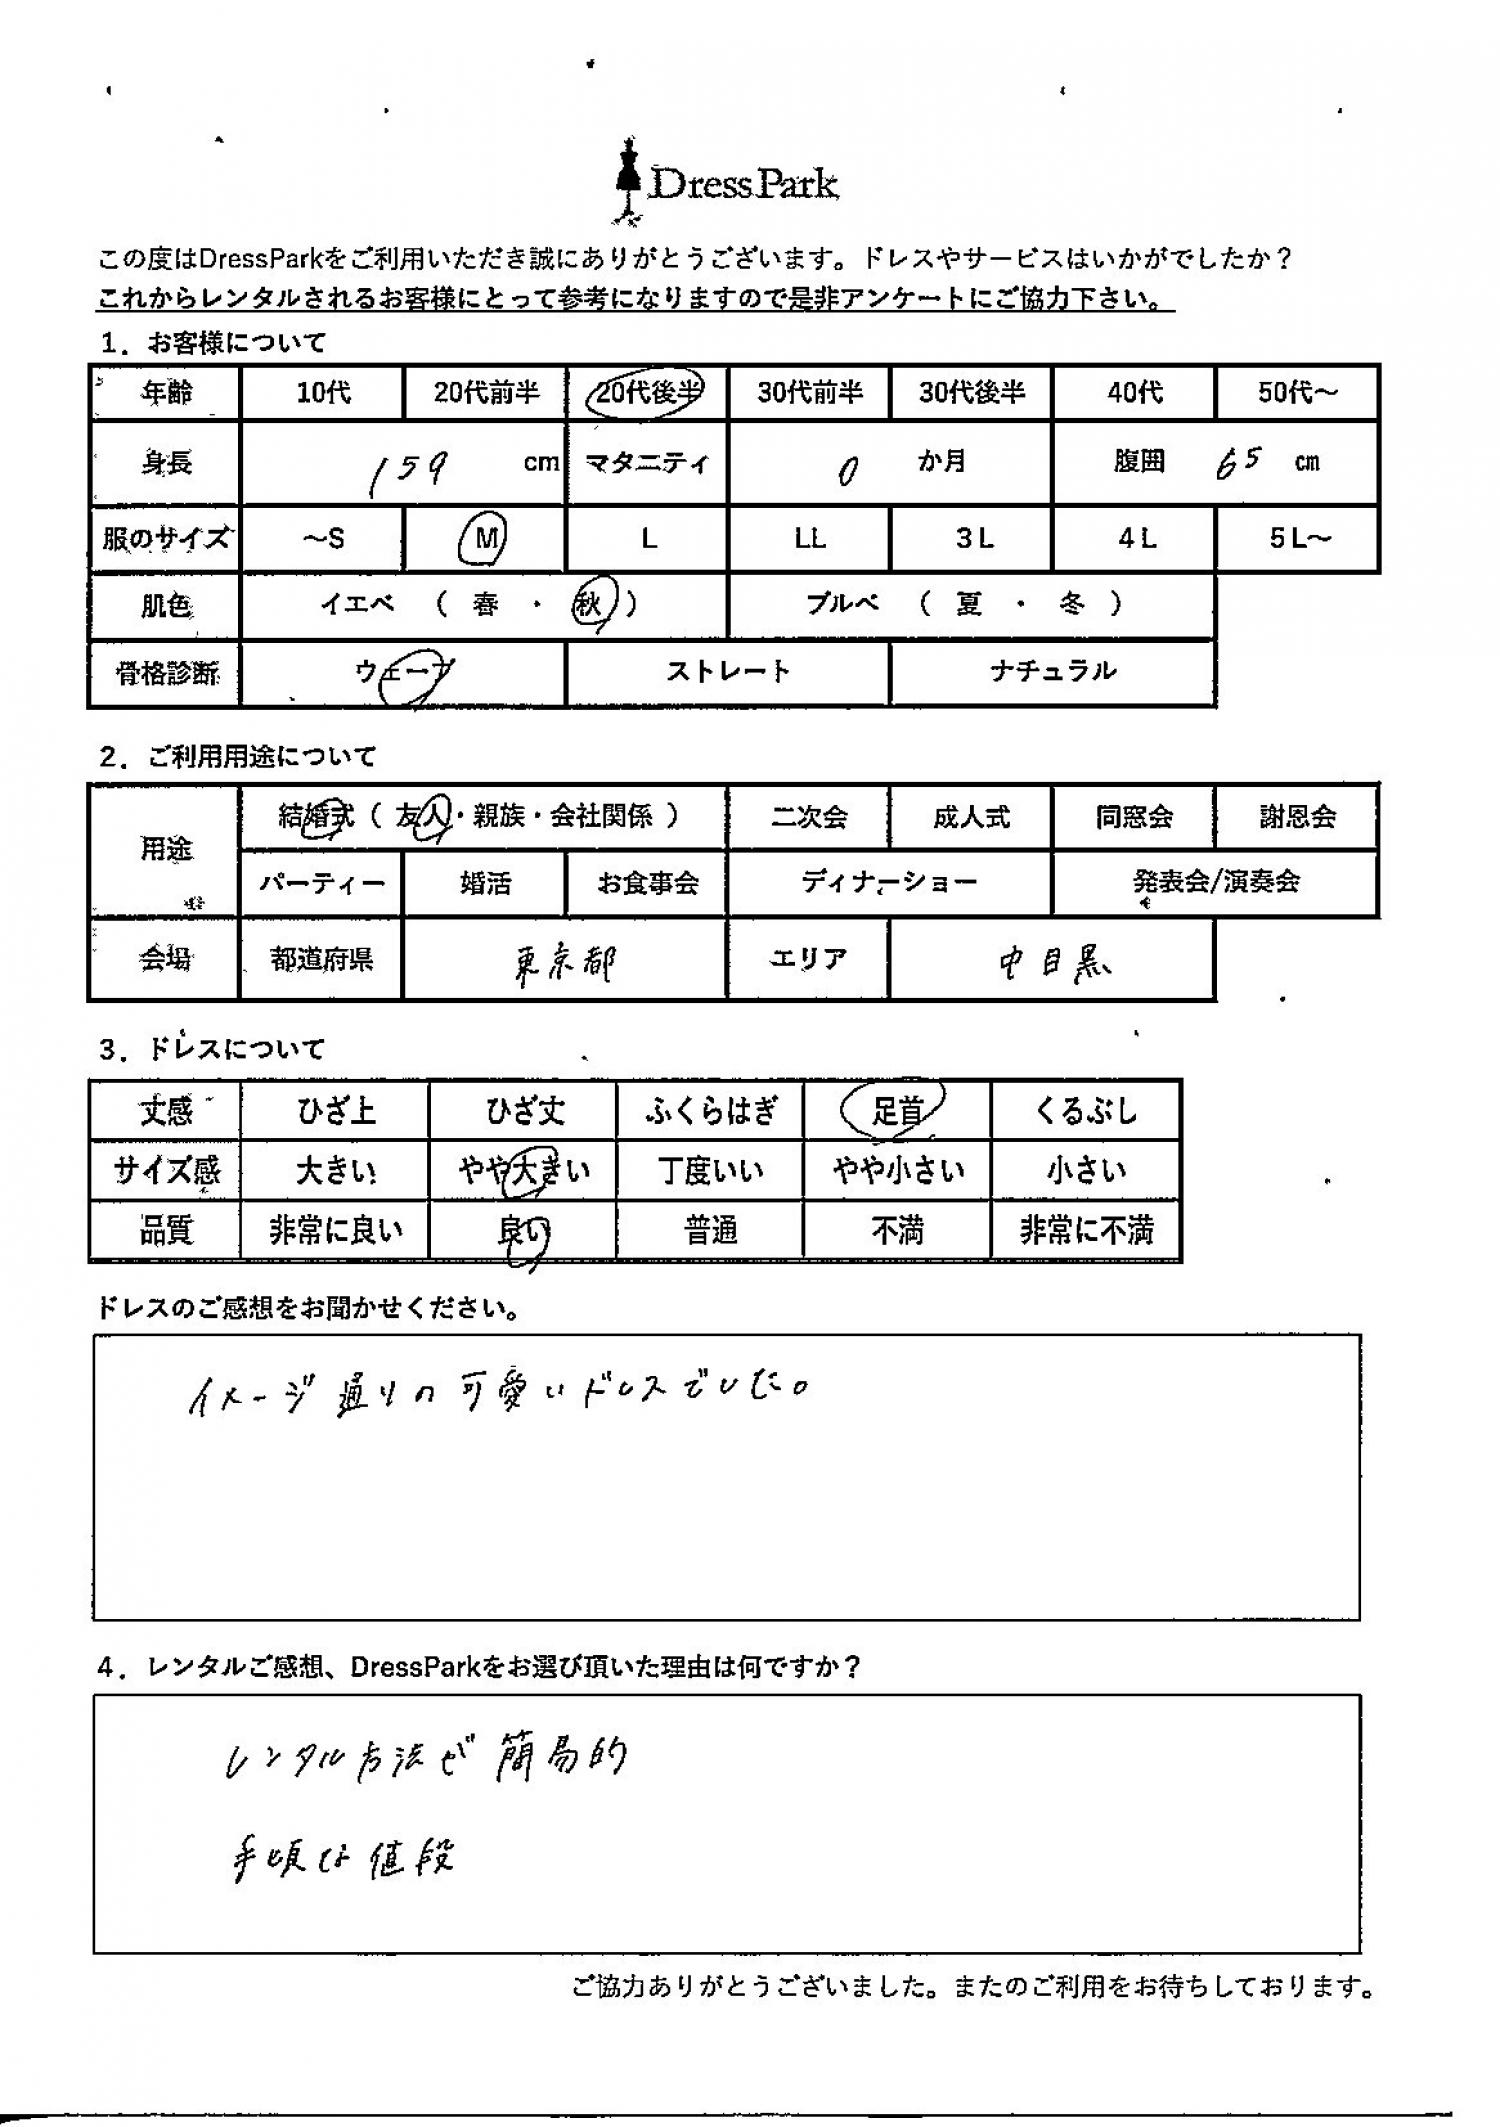 DressPark
この度はDressParkをご利用いただき誠にありがとうございます。ドレスやサービスはいかがでしたか？
これからレンタルされるお客様にとって参考になりますので是非アンケートにご協力下さい。
1．お客様について
年齢 10代 20代前半 20代後半 30代前半 30代後半 40代 50代～
身長 159 cm マタニティ 0 か月 腹囲 65 cm
服のサイズ ～S M L LL 3L 4L 5L～
肌色 イエベ （ 春 ・ 秋 ） ブルベ （ 夏 ・ 冬 ）
骨格診断 ウェーブ ストレート ナチュラル
2．ご利用用途について
用途 結婚式（ 友人・親族・会社関係 ） 二次会 成人式 同窓会 謝恩会
パーティー 婚活 お食事会 ディナーショー 発表会/演奏会
会場 都道府県 東京都 エリア 中目黒
3．ドレスについて
丈感 ひざ上 ひざ丈 ふくらはぎ 足首 くるぶし
サイズ感 大きい やや大きい 丁度いい やや小さい 小さい
品質 非常に良い 良い 普通 不満 非常に不満
ドレスのご感想をお聞かせください。
イメージ通りの可愛いドレスでした。
4．レンタルご感想、DressParkをお選び頂いた理由は何ですか？
レンタル方法が簡易的
手頃な値段
ご協力ありがとうございました。またのご利用をお待ちしております。